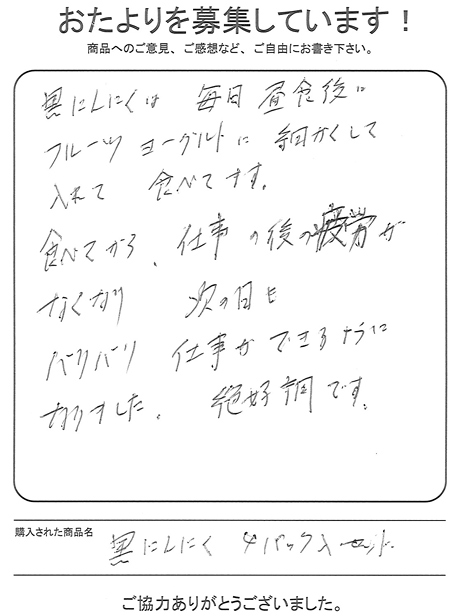 おたよりを募集しています！
商品へのご意見、ご感想など、ご自由にお書き下さい。
黒にんにくは 毎日 昼食後に
フルーツ ヨーグルトに 細かくして
入れて 食べてます。
食べてから、仕事の後の疲労が
なくなり 次の日も
バリバリ 仕事ができるように
なりました。 絶好調です。
購入された商品名
黒にんにく 4パック入セット
ご協力ありがとうございました。